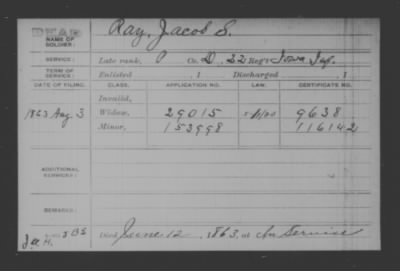 DEAD
NAME OF SOLDIER: Ray, Jacob S.
SERVICE: Late rank, P Co. D, 22 Reg't Iowa Inf.
TERM OF SERVICE: Enlisted , 1 Discharged , 1
DATE OF FILING. CLASS. APPLICATION NO. LAW. CERTIFICATE NO.
Invalid,
1863 Aug 3 Widow, 29015 9638
Minor, 153998 116142
ADDITIONAL SERVICES:
REMARKS:
Died June 12, 1863, at In Service